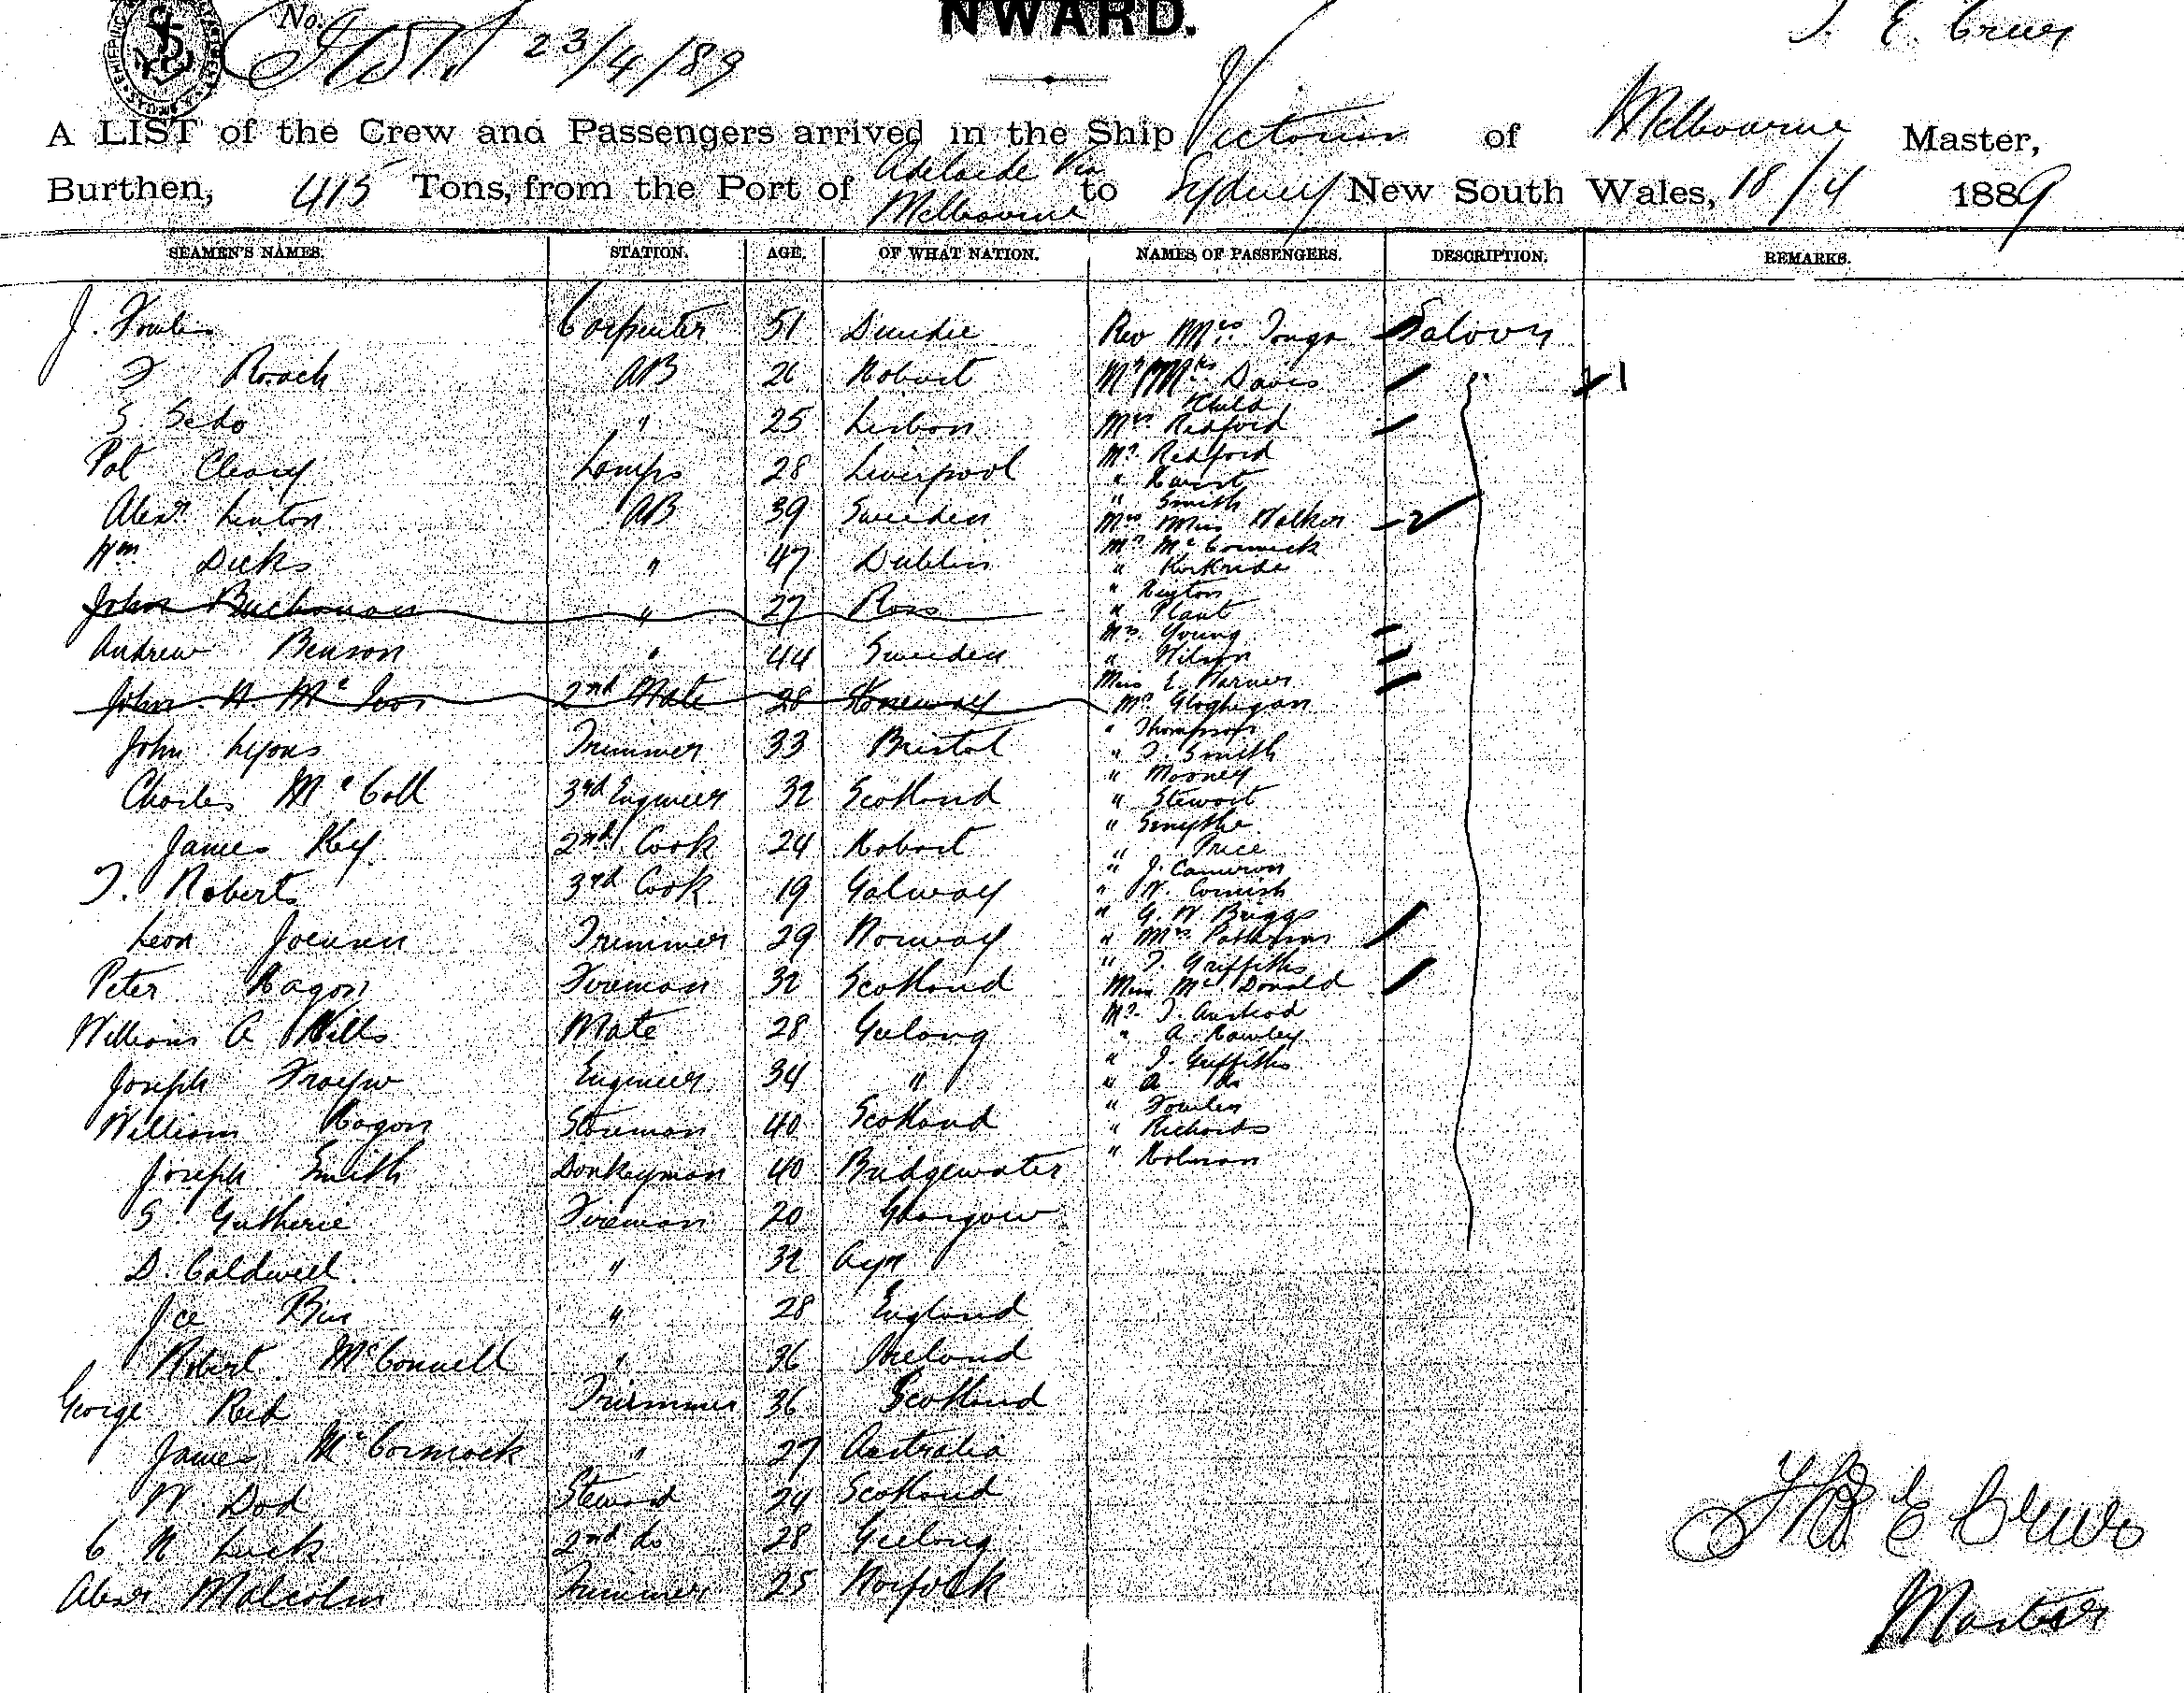 No.
23/4/89
NWARD.
T. E. Crews
A LIST of the Crew and Passengers arrived in the Ship Victorian of Melbourne Master,
Burthen, 415 Tons, from the Port of Adelaide via Melbourne to Sydney New South Wales, 18/4 1889
SEAMEN'S NAMES. STATION. AGE. OF WHAT NATION. NAMES OF PASSENGERS. DESCRIPTION. REMARKS.
J. Fowlis Carpenter 51 Dundee Rev Mrs Tonge Saloon
F Roach AB 26 Hobart Mr Mrs Davis 1
Child
S. Seko " 25 Lisbon Mrs Redford
Pat Cleary Lamps 28 Liverpool Mr Redford
" Hurst
" Smith
Alexr Linton AB 39 Sweden Mrs Miss Walker 2
Mr McCormick
Wm Dicks " 47 Dublin " Kirkride
" Huxton
John Buchanan " 27 Ross " Plant
Mrs Young
Andrew Benson " 44 Sweden " Wilson
Miss E. Warner
John H Mc 2nd Mate 28 Mr Gloghegan
" Thompson
John Lyons Trimmer 33 Bristol " T. Smith
" Mooney
Charles McColl 3rd Engineer 32 Scotland " Stewart
" Smythe
James Key 2nd Cook 24 Hobart " Price
" J. Cameron
T. Roberts 3rd Cook 19 Galway " W. Cornish
" G. W. Briggs
Leon Trimmer 29 Norway " Mrs Patterson
" T. Griffiths
Peter Hagon Fireman 32 Scotland Miss McDonald
Mr T.
William A Wills Mate 28 Geelong " A. Cawley
" J. Griffiths
Joseph Engineer 34 " " A do
" Fowler
William Hagon Storeman 40 Scotland " Richards
Joseph Smith Donkeyman 40 Bridgewater " Holman
S. Gutherie Fireman 20 Glasgow
D. Caldwell " 32 Ayr
Joe " 28 England
Robert McConnell " 36 Ireland
George Reid Trimmer 36 Scotland
James McCormock " 27 Australia
W Dod Steward 24 Scotland
C N Luck 2nd do 28 Geelong
Alexr Malcolm Trimmer 25 Norfolk
Thos E Crews
Master